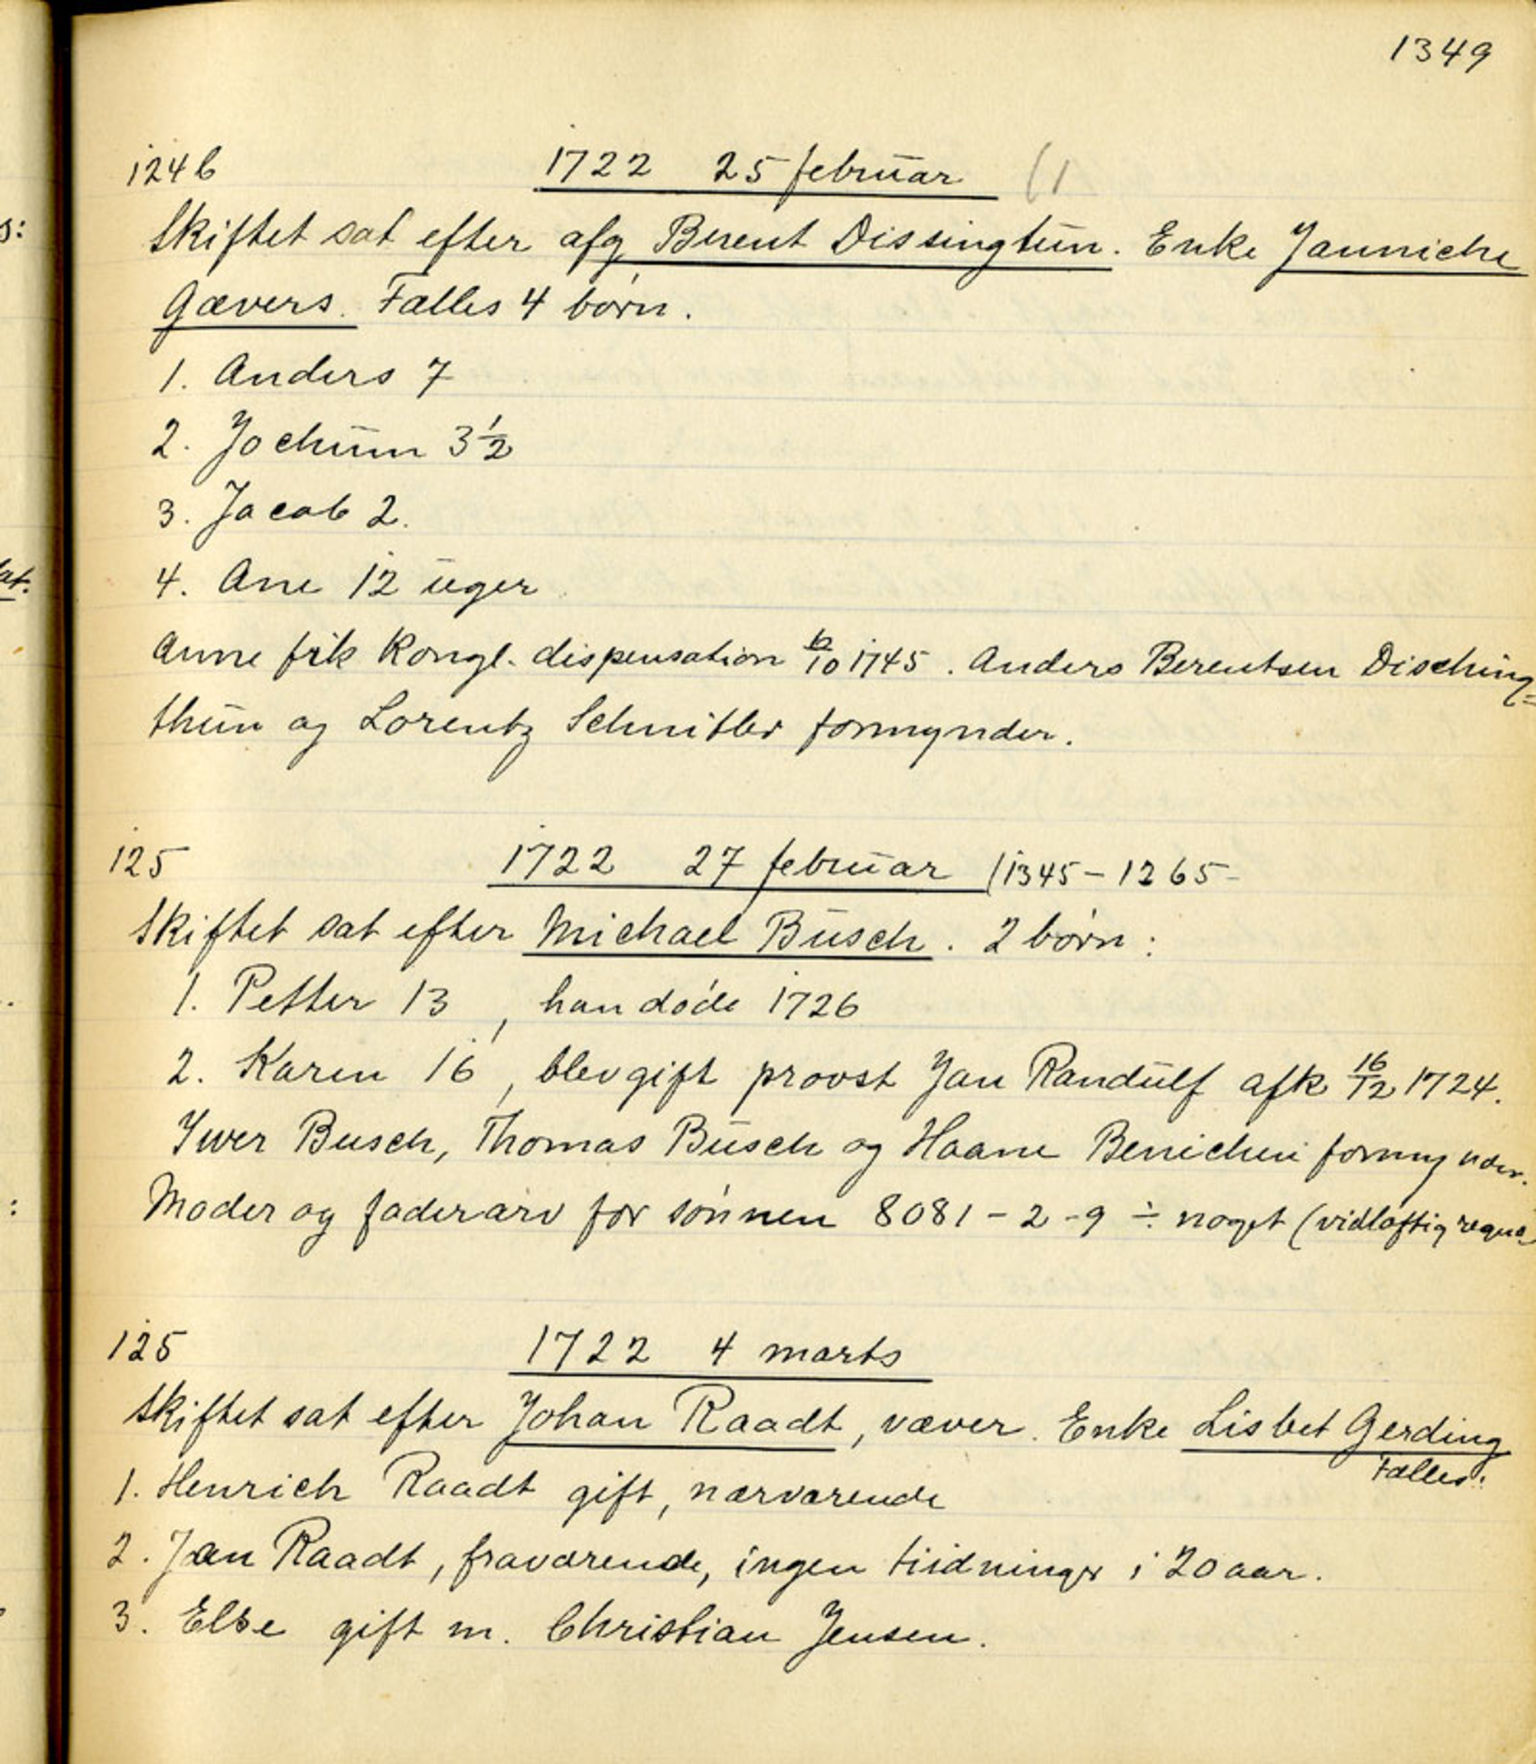 1349
124 b 1722 25 februar (1
Skiftet sat efter afg Berent Dissingtun. Enke Janniche
Gævers. Fælles 4 børn.
1. Anders 7
2. Jochum 3 1/2
3. Jacob 2.
4. Ane 12 uger
Anne fik Kongl. dispensation /10 1745. Anders Berentsen Disching=
thun og Lorentz Schnitler formynder.
125 1722 27 februar (1345-1265-
Skiftet sat efter Michael Busch. 2 børn:
1. Petter 13, han døde 1726
2. Karen 16, blev gift provst Jan Randulf afk 16/12 1724.
Iwer Busch, Thomas Busch og Haane Benichen formynder.
Moder og faderarv for sønnen 8081-2-9 ÷ noget (vidløftig
125 1722 4 marts
Skiftet sat efter Johan Raadt, væver. Enke Lisbet Gerding
Fælles:
1. Henrich Raadt gift, nærværende
2. Jan Raadt, fraværende, ingen tiidninger i 20 aar.
3. Else gift m. Christian Jensen.
s:
at.
: